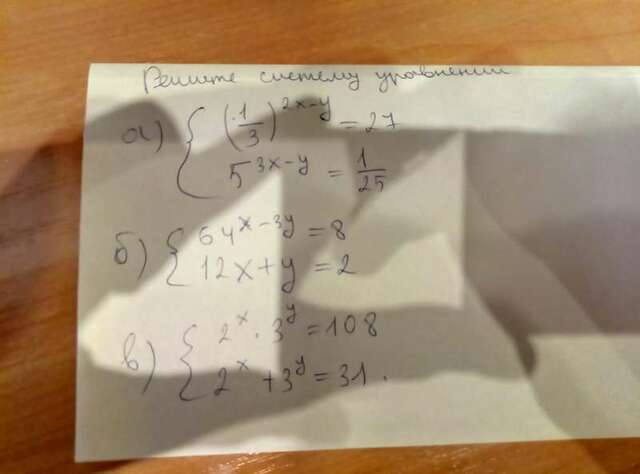 Решите систему уравнений
а) { (1/3)^{2x-y} = 27
5^{3x-y} = 1/25
б) { 64^{x-3y} = 8
12x+y = 2
в) { 2^x · 3^y = 108
2^x + 3^y = 31.